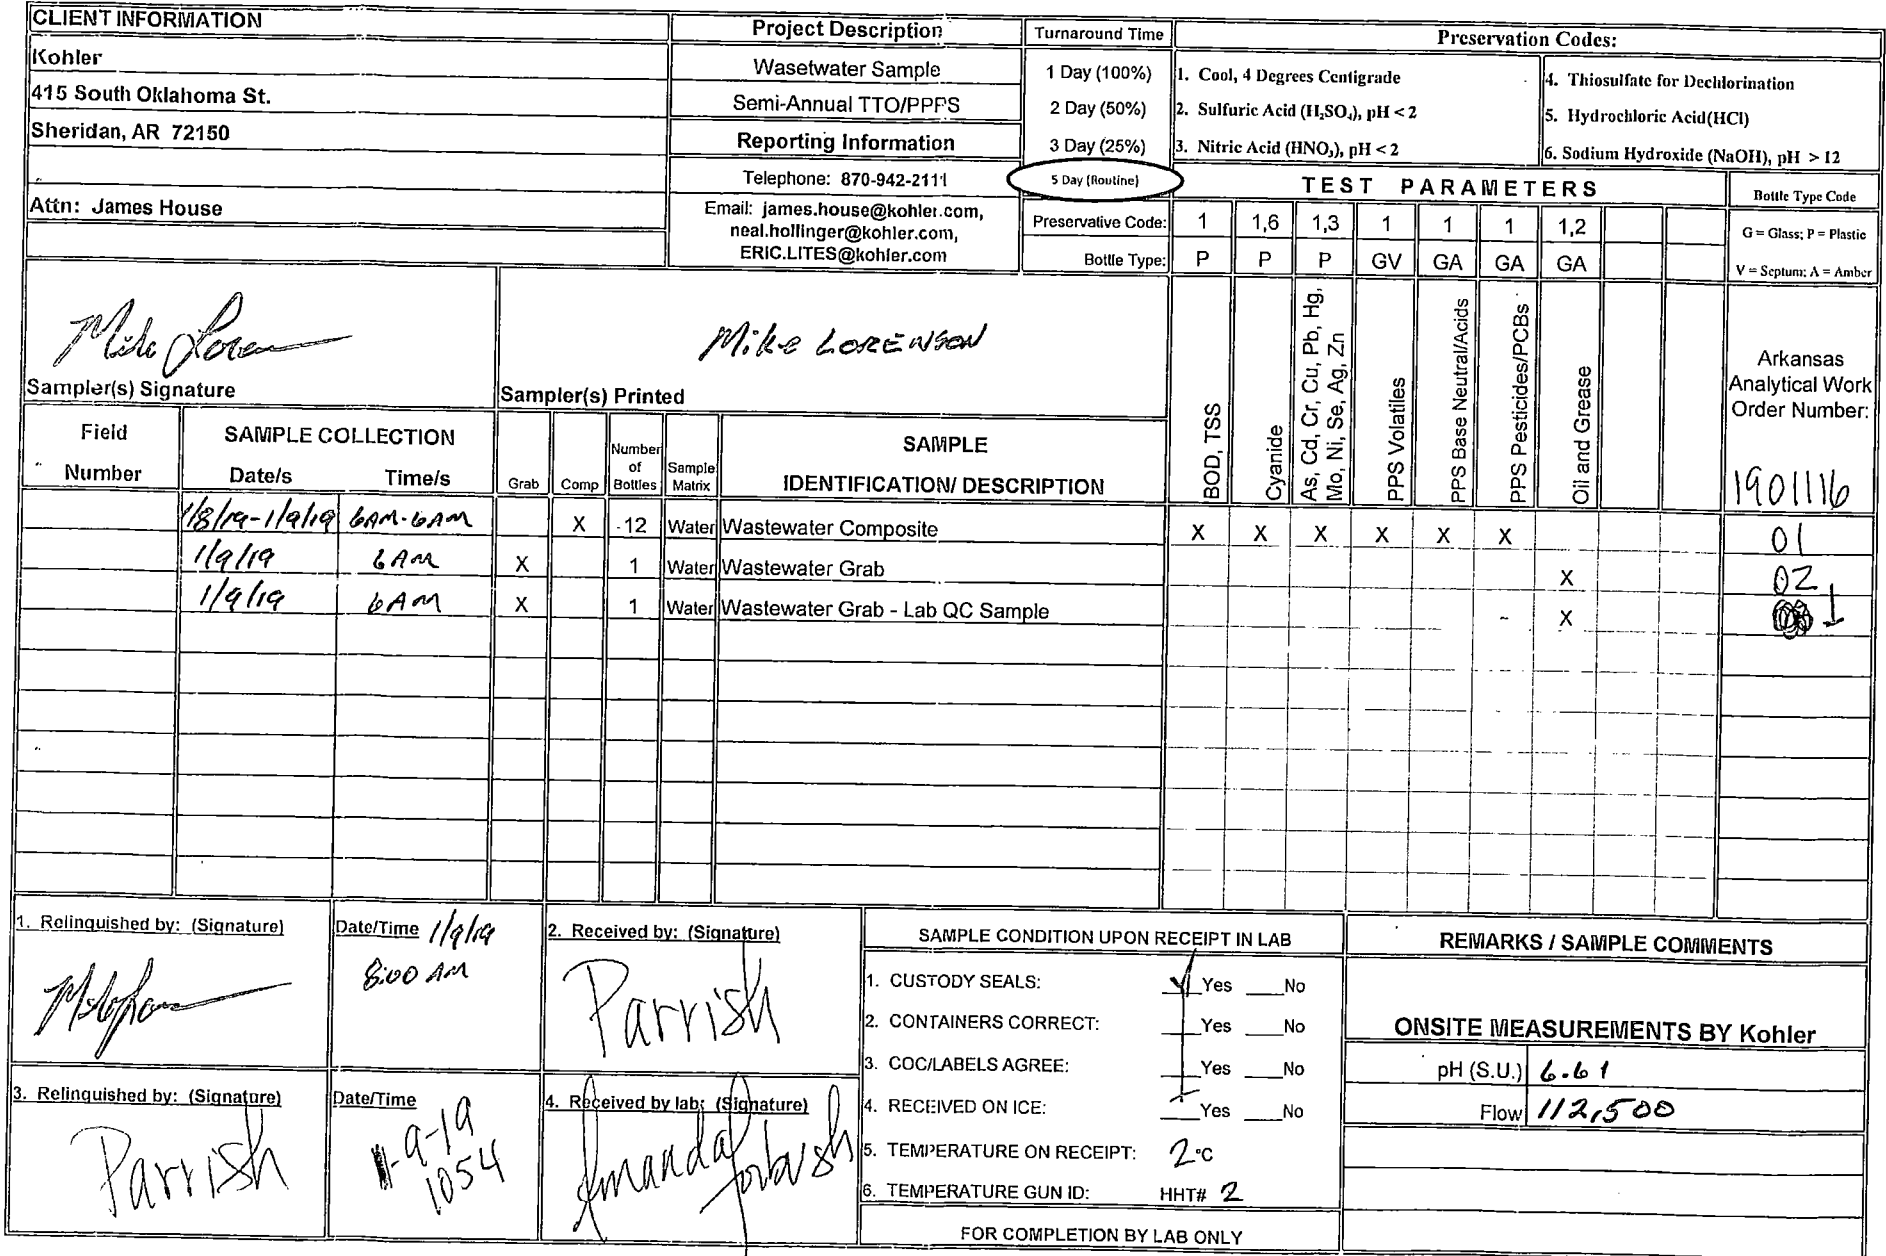 CLIENT INFORMATION
Kohler
415 South Oklahoma St.
Sheridan, AR 72150
Attn: James House
Project Description
Wasetwater Sample
Semi-Annual TTO/PPPS
Reporting Information
Telephone: 870-942-2111
Email: james.house@kohler.com,
neal.hollinger@kohler.com,
ERIC.LITES@kohler.com
Turnaround Time
1 Day (100%)
2 Day (50%)
3 Day (25%)
5 Day (Routine)
Preservation Codes:
1. Cool, 4 Degrees Centigrade
2. Sulfuric Acid (H₂SO₄), pH < 2
3. Nitric Acid (HNO₃), pH < 2
4. Thiosulfate for Dechlorination
5. Hydrochloric Acid(HCl)
6. Sodium Hydroxide (NaOH), pH > 12
TEST PARAMETERS
Bottle Type Code
G = Glass; P = Plastic
V = Septum; A = Amber
Preservative Code: 1 1,6 1,3 1 1 1 1,2
Bottle Type: P P P GV GA GA GA
BOD, TSS
Cyanide
As, Cd, Cr, Cu, Pb, Hg,
Mo, Ni, Se, Ag, Zn
PPS Volatiles
PPS Base Neutral/Acids
PPS Pesticides/PCBs
Oil and Grease
Arkansas
Analytical Work
Order Number:
1901116
Mike Loren
Sampler(s) Signature
Mike LORENSON
Sampler(s) Printed
Field
Number
SAMPLE COLLECTION
Date/s Time/s
Grab
Comp
Number
of
Bottles
Sample
Matrix
SAMPLE
IDENTIFICATION/ DESCRIPTION
1/8/19-1/9/19 6AM-6AM X 12 Water Wastewater Composite X X X X X X 01
1/9/19 6AM X 1 Water Wastewater Grab X 02
1/9/19 6AM X 1 Water Wastewater Grab - Lab QC Sample X
1. Relinquished by: (Signature)
Date/Time 1/9/19
8:00 AM
2. Received by: (Signature)
Parrish
3. Relinquished by: (Signature)
Parrish
Date/Time
1-9-19
1054
4. Received by lab: (Signature)
Amanda Forbush
SAMPLE CONDITION UPON RECEIPT IN LAB
1. CUSTODY SEALS: ✓ Yes ___No
2. CONTAINERS CORRECT: ___Yes ___No
3. COC/LABELS AGREE: ___Yes ___No
4. RECEIVED ON ICE: ___Yes ___No
5. TEMPERATURE ON RECEIPT: 2 °C
6. TEMPERATURE GUN ID: HHT# 2
FOR COMPLETION BY LAB ONLY
REMARKS / SAMPLE COMMENTS
ONSITE MEASUREMENTS BY Kohler
pH (S.U.) 6.61
Flow 112,500